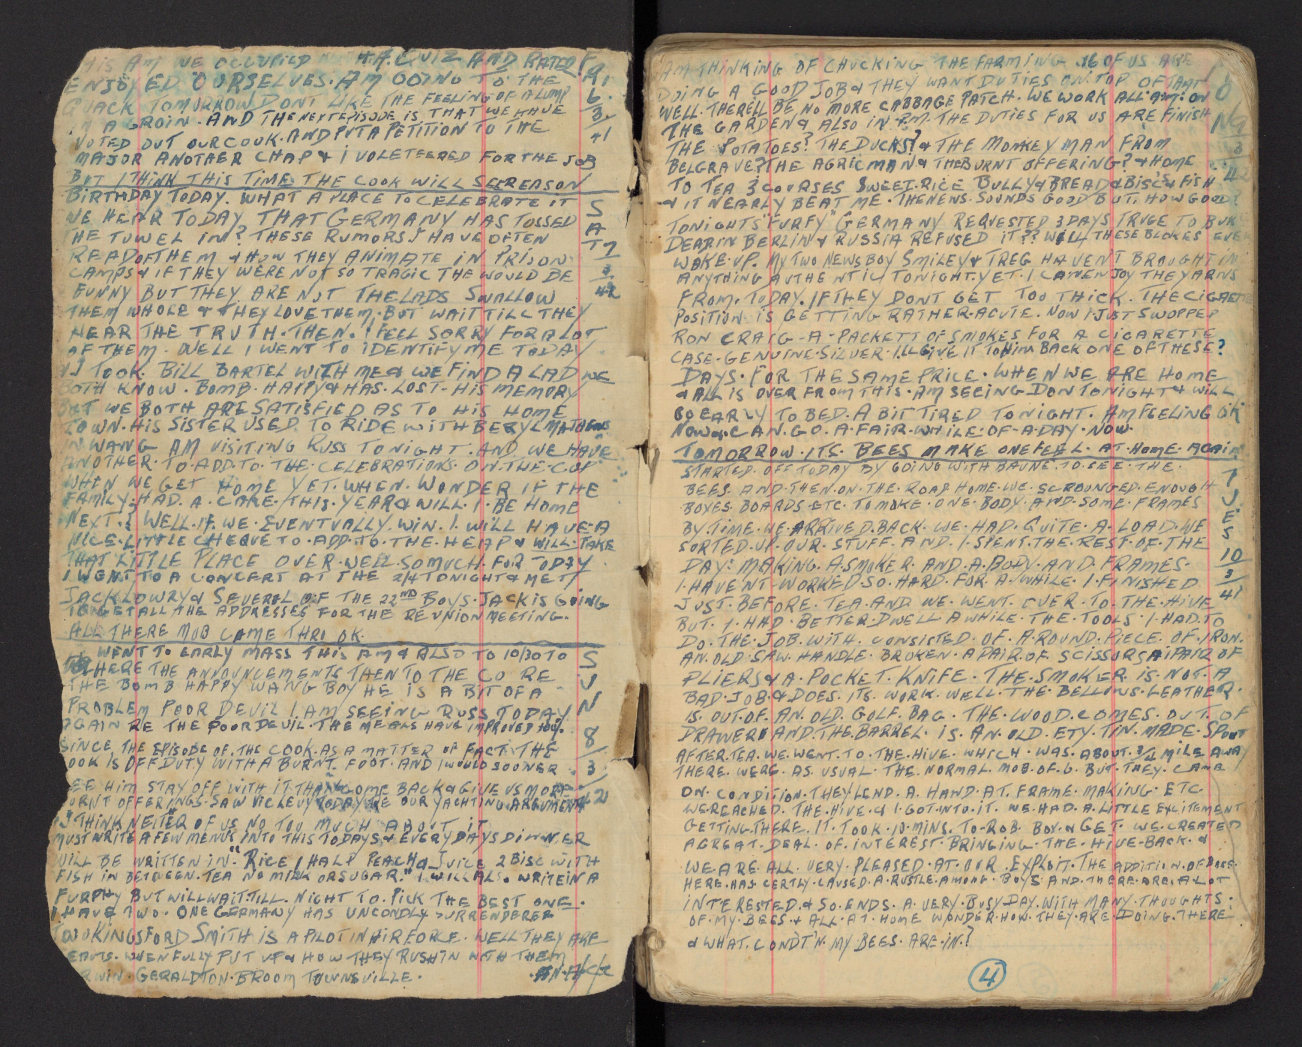 THIS AM WE OCCUPIED H.A. QUIZ AND RATED F
ENJOYED OURSELVES. AM GOING TO THE R
QUACK TOMORROW DONT LIKE THE FEELING OF A LUMP 6
IN A GROIN. AND THE NEXT EPISODE IS THAT WE HAVE 3
VOTED OUT OUR COOK. AND PUT A PETITION TO THE 41
MAJOR ANOTHER CHAP & I VOLETEERED FOR THE JOB
BUT I THINK THIS TIME THE COOK WILL SEE REASON
BIRTHDAY TODAY. WHAT A PLACE TO CELEBRATE IT
WE HEAR TODAY THAT GERMANY HAS TOSSED S
THE TOWEL IN? THESE RUMORS I HAVE OFTEN A
READ OF THEM & HOW THEY ANIMATE IN PRISON T 7
CAMPS & IF THEY WERE NOT SO TRAGIC THE WOULD BE 3
FUNNY BUT THEY ARE NOT THE LADS SWALLOW 42
THEM WHOLE & THEY LOVE THEM. BUT WAIT TILL THEY
HEAR THE TRUTH. THEN. I FEEL SORRY FOR A LOT
OF THEM. WELL I WENT TO IDENTIFY ME TODAY
& I TOOK BILL BARTEL WITH ME & WE FIND A LAD WE
BOTH KNOW. BOMB. HAPPY & HAS LOST HIS MEMORY
BUT WE BOTH ARE SATISFIED AS TO HIS HOME
TOWN. HIS SISTER USED TO RIDE WITH BERYL MATHEWS
IN WANG AM VISITING RUSS TONIGHT. AND WE HAVE
ANOTHER TO ADD TO THE CELEBRATIONS ON THE CUP
WHEN WE GET HOME YET. WHEN. WONDER IF THE
FAMILY HAD A CAKE THIS YEAR & WILL I BE HOME
NEXT. & WELL. IF WE EVENTUALLY WIN. I WILL HAVE A
NICE LITTLE CHEQUE TO ADD TO THE HEAP & WILL TAKE
THAT LITTLE PLACE OVER WELL SO MUCH FOR TODAY
I WENT TO A CONCERT AT THE 2/4 TONIGHT & MET
JACK LOWRY & SEVEROL OF THE 22ND BOYS. JACK IS GOING
TO GET ALL THE ADDRESSES FOR THE REUNION MEETING.
ALL THERE MOB CAME THRU OK
WENT TO EARLY MASS THIS AM & ALSO TO 10/30 TO S
HERE THE ANNOUNCEMENTS THEN TO THE CO RE U
THE BOMB HAPPY WANG BOY HE IS A BIT OF A
PROBLEM POOR DEVIL I AM SEEING RUSS TODAY N
AGAIN RE THE POOR DEVIL. THE MEALS HAVE IMPROVED TOO.
SINCE THE EPISODE OF THE COOK AS A MATTER OF FACT THE 8
COOK IS OFF DUTY WITH A BURNT FOOT AND I WOULD SOONER 3
SEE HIM STAY OFF WITH IT THAN COME BACK & GIVE US MORE
BURNT OFFERINGS. SAW VIC LEUY TODAY RE OUR YACHTING ARGUMENT 42
& I THINK NEITER OF US NO TOO MUCH ABOUT IT
MUST WRITE A FEW MENUS INTO THIS TODAYS & EVERY DAYS DINNER
WILL BE WRITTEN IN "RICE 1 HALF PEACH & JUICE 2 BISC WITH
FISH IN BETWEEN. TEA NO MILK OR SUGAR." I WILL ALSO WRITE IN A
FURPHY BUT WILL WAIT TILL NIGHT TO PICK THE BEST ONE.
I HAVE TWO. ONE GERMANY HAS UNCONDLY SURRENDERED
TWO KINGSFORD SMITH IS A PILOT IN AIR FORCE. WELL THEY ARE
BEAUTS. WHEN FULLY PUT UP & HOW THEY RUSH IN WITH THEM
DARWIN. GERALDTON. BROOM TOWNSVILLE.
AM THINKING OF CHUCKING THE FARMING. 16 OF US ARE
DOING A GOOD JOB & THEY WANT DUTIES ON TOP OF THAT
WELL. THERELL BE NO MORE CABBAGE PATCH. WE WORK ALL AM. ON
THE GARDEN & ALSO IN P.M. THE DUTIES FOR US ARE FINISH
THE POTATOES? THE DUCKS? & THE MONKEY MAN FROM 3
BELGRAVE? THE AGRIC MAN & THE BURNT OFFERING? & HOME 42
TO TEA 3 COURSES SWEET. RICE BULLY & BREAD & BISC'S & FISH
& IT NEARLY BEAT ME. THE MENS. SOUNDS GOOD BUT. HOW GOOD?
TONIGHTS "FURFY" GERMANY REQUESTED 3 DAYS TRUCE TO BURY
DEAD IN BERLIN & RUSSIA REFUSED IT?? WILL THESE BLOKES EVER
WAKE UP. MY TWO NEWS BOY SMILEY & TREG HAVENT BROUGHT IN
ANYTHING AUTHENTIC TONIGHT YET. I CAN ENJOY THE YARNS
FROM. TODAY. IF THEY DONT GET TOO THICK. THE CIGARETTE
POSITION IS GETTING RATHER ACUTE. NOW I JUST SWOPPED
RON CRAIG - A - PACKET OF SMOKES FOR A CIGARETTE
CASE. GENUINE SILVER. I'LL GIVE IT TO HIM BACK ONE OF THESE?
DAYS. FOR THE SAME PRICE. WHEN WE ARE HOME
& ALL IS OVER FROM THIS. AM SEEING DON TONIGHT & WILL
GO EARLY TO BED. A BIT TIRED TONIGHT. AM FEELING OK
NOW & CAN. GO. A. FAIR. WHILE. OF. A. DAY. NOW.
TOMORROW. ITS. BEES MAKE ONE FEEL. AT. HOME. AGAIN
STARTED. OFF TODAY BY GOING WITH BAYNE. TO. SEE. THE. T
BEES. AND. THEN. ON. THE. ROAD HOME. WE. SCROUNGED. ENOUGH U
BOXES. BOARDS ETC. TO MAKE. ONE. BODY. AND. SOME. FRAMES E
BY. TIME. WE. ARRIVED. BACK. WE. HAD. QUITE. A. LOAD. WE S
SORTED. UP. OUR. STUFF. AND. I. SPENT. THE. REST. OF. THE
DAY. MAKING. A. SMOKER. AND. A. BODY. AND. FRAMES. 10
I. HAVENT WORKED. SO. HARD. FOR. A. WHILE. I. FINISHED 3
JUST. BEFORE. TEA. AND. WE. WENT. OVER. TO. THE. HIVE 41
BUT. I. HAD. BETTER. DWELL A WHILE. THE. TOOLS. I. HAD. TO
DO. THE. JOB. WITH. CONSISTED. OF. A. ROUND. PIECE. OF. IRON.
AN. OLD. SAW. HANDLE. BROKEN. A PAIR. OF. SCISSORS & A PAIR. OF
PLIERS & A. POCKET. KNIFE. THE. SMOKER. IS. NOT. A
BAD. JOB & DOES. ITS. WORK. WELL. THE. BELLOWS. LEATHER.
IS. OUT. OF. AN. OLD. GOLF. BAG. THE. WOOD. COMES. OUT. OF
DRAWER & AND. THE. BARREL. IS. AN. OLD. ETY. TIN. MADE. SPOUT
AFTER. TEA. WE. WENT. TO. THE. HIVE. WHICH. WAS. ABOUT. 3/4 MILE AWAY
THERE. WERE. AS. USUAL. THE. NORMAL. MOB. OF. 6. BUT. THEY. CAME
ON. CONDITION. THEY LEND. A. HAND. AT. FRAME. MAKING. ETC
WE REACHED. THE. HIVE. & I. GOT. INTO. IT. WE. HAD. A. LITTLE EXCITEMENT
GETTING. THERE. IT. TOOK. 10. MINS. TO. ROB. BOX. & GET. WE. CREATED
A GREAT. DEAL. OF. INTEREST. BRINGING. THE. HIVE. BACK. &
WE ARE. ALL. VERY. PLEASED. AT. OUR. EXPLOIT. THE ADDITION. OF BEES.
HERE. HAS. CERTLY. CAUSED. A. RUSTLE. AMONG. BOYS AND. THERE. ARE. A LOT
INTERESTED. & SO. ENDS. A. VERY. BUSY. DAY. WITH. MANY. THOUGHTS.
OF. MY. BEES. & ALL. AT. HOME WONDER. HOW. THEY. ARE. DOING. THERE
& WHAT. CONDT'N. MY BEES. ARE. IN.?
4